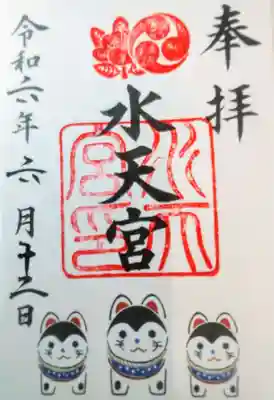 奉拝
水天宮
令和六年六月十二日